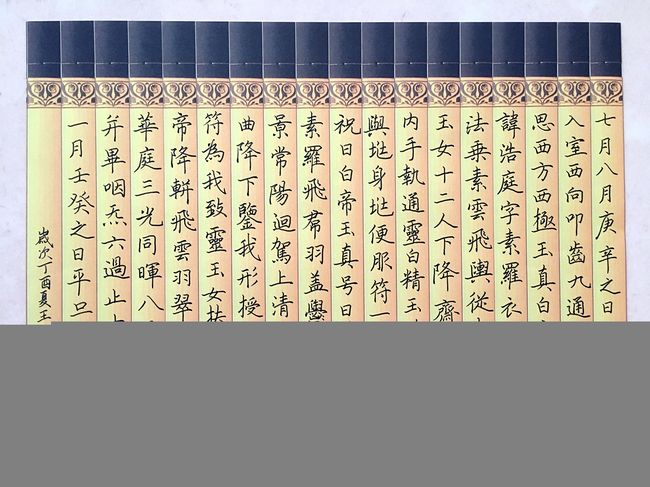 七月八月庚辛之日
入室西向叩齒九通
思西方西極玉真白
諱浩庭字素羅衣
法乗素雲飛輿從
玉女十二人下降齋
内手執通靈白精玉
與𡉄身𡉄便服符一
祝曰白帝玉真号曰
素羅飛帬羽盖鬱
景常陽迴駕上清
曲降下鑒我形授
符為我致靈玉女扶
帝降軿飛雲羽翠
華庭三光同暉八
并畢咽炁六過止
一月壬癸之日平旦
歲次丁酉夏王